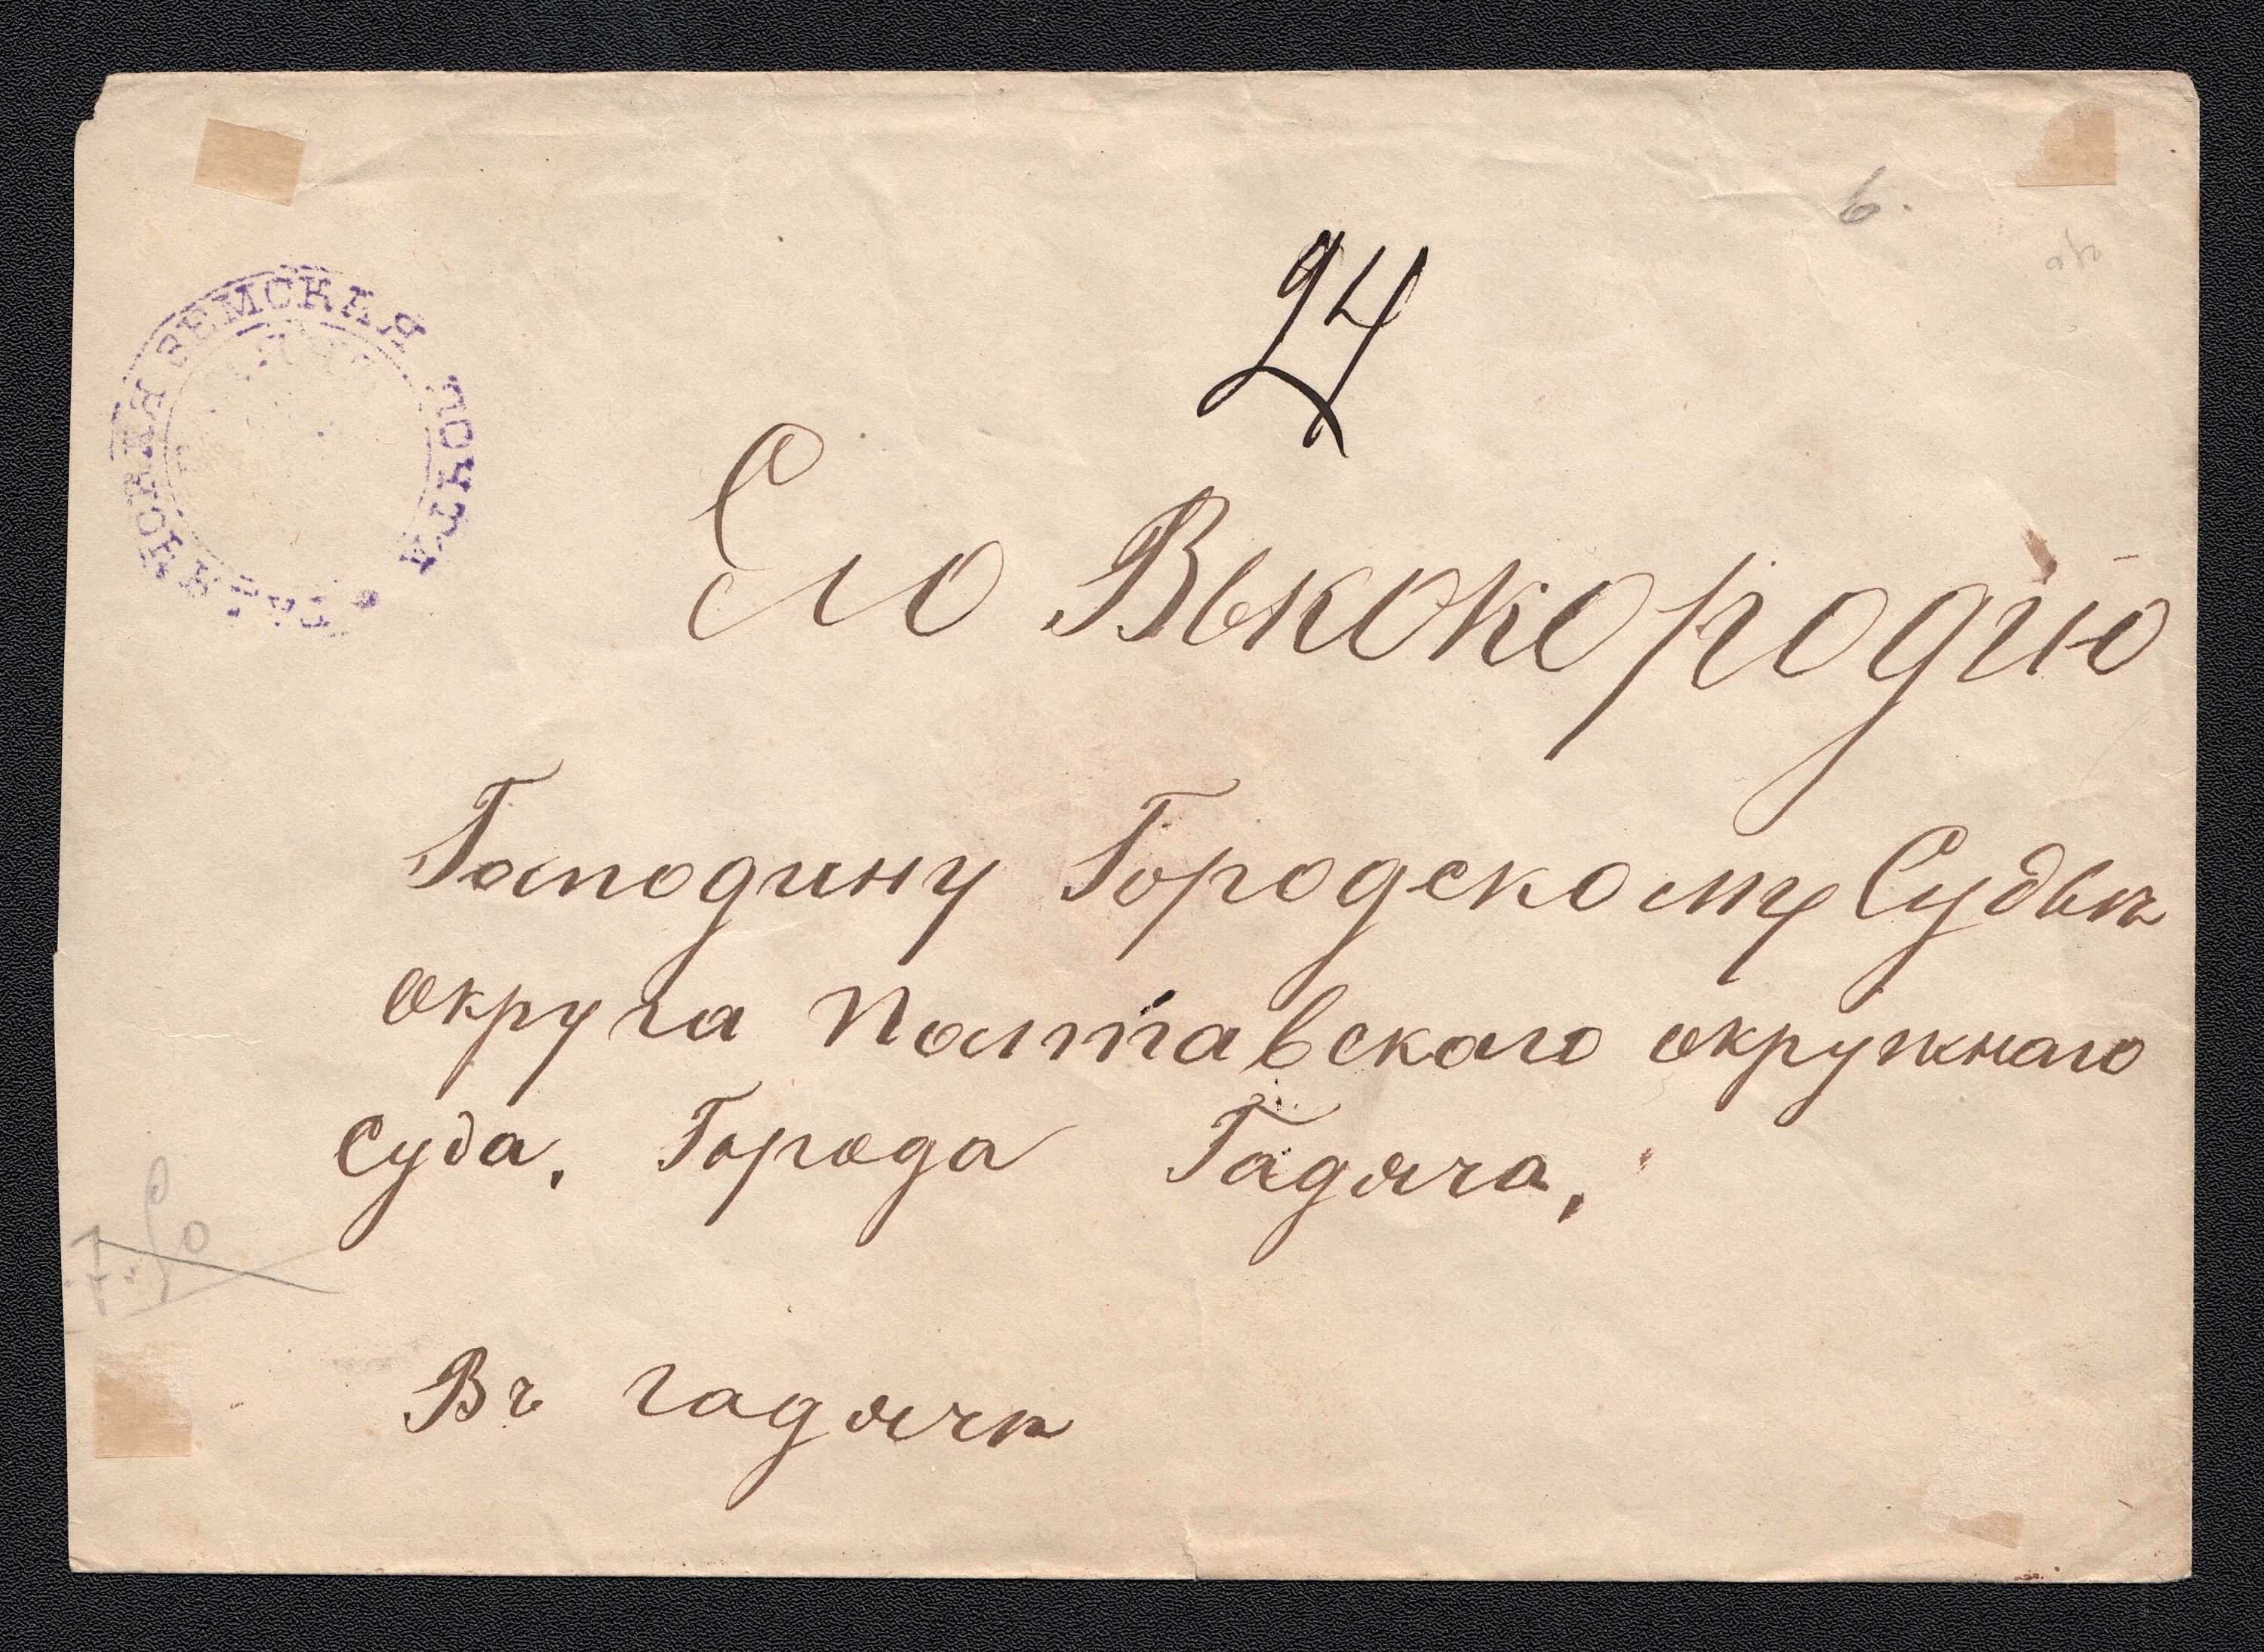 ЗЕМСКАЯ ПОЧТА
6.
24
Его Выкокородію
Господину Городскому Судьѣ
округа Полтавскаго окружнаго
Суда. Города Гадяча.
Въ гадячѣ